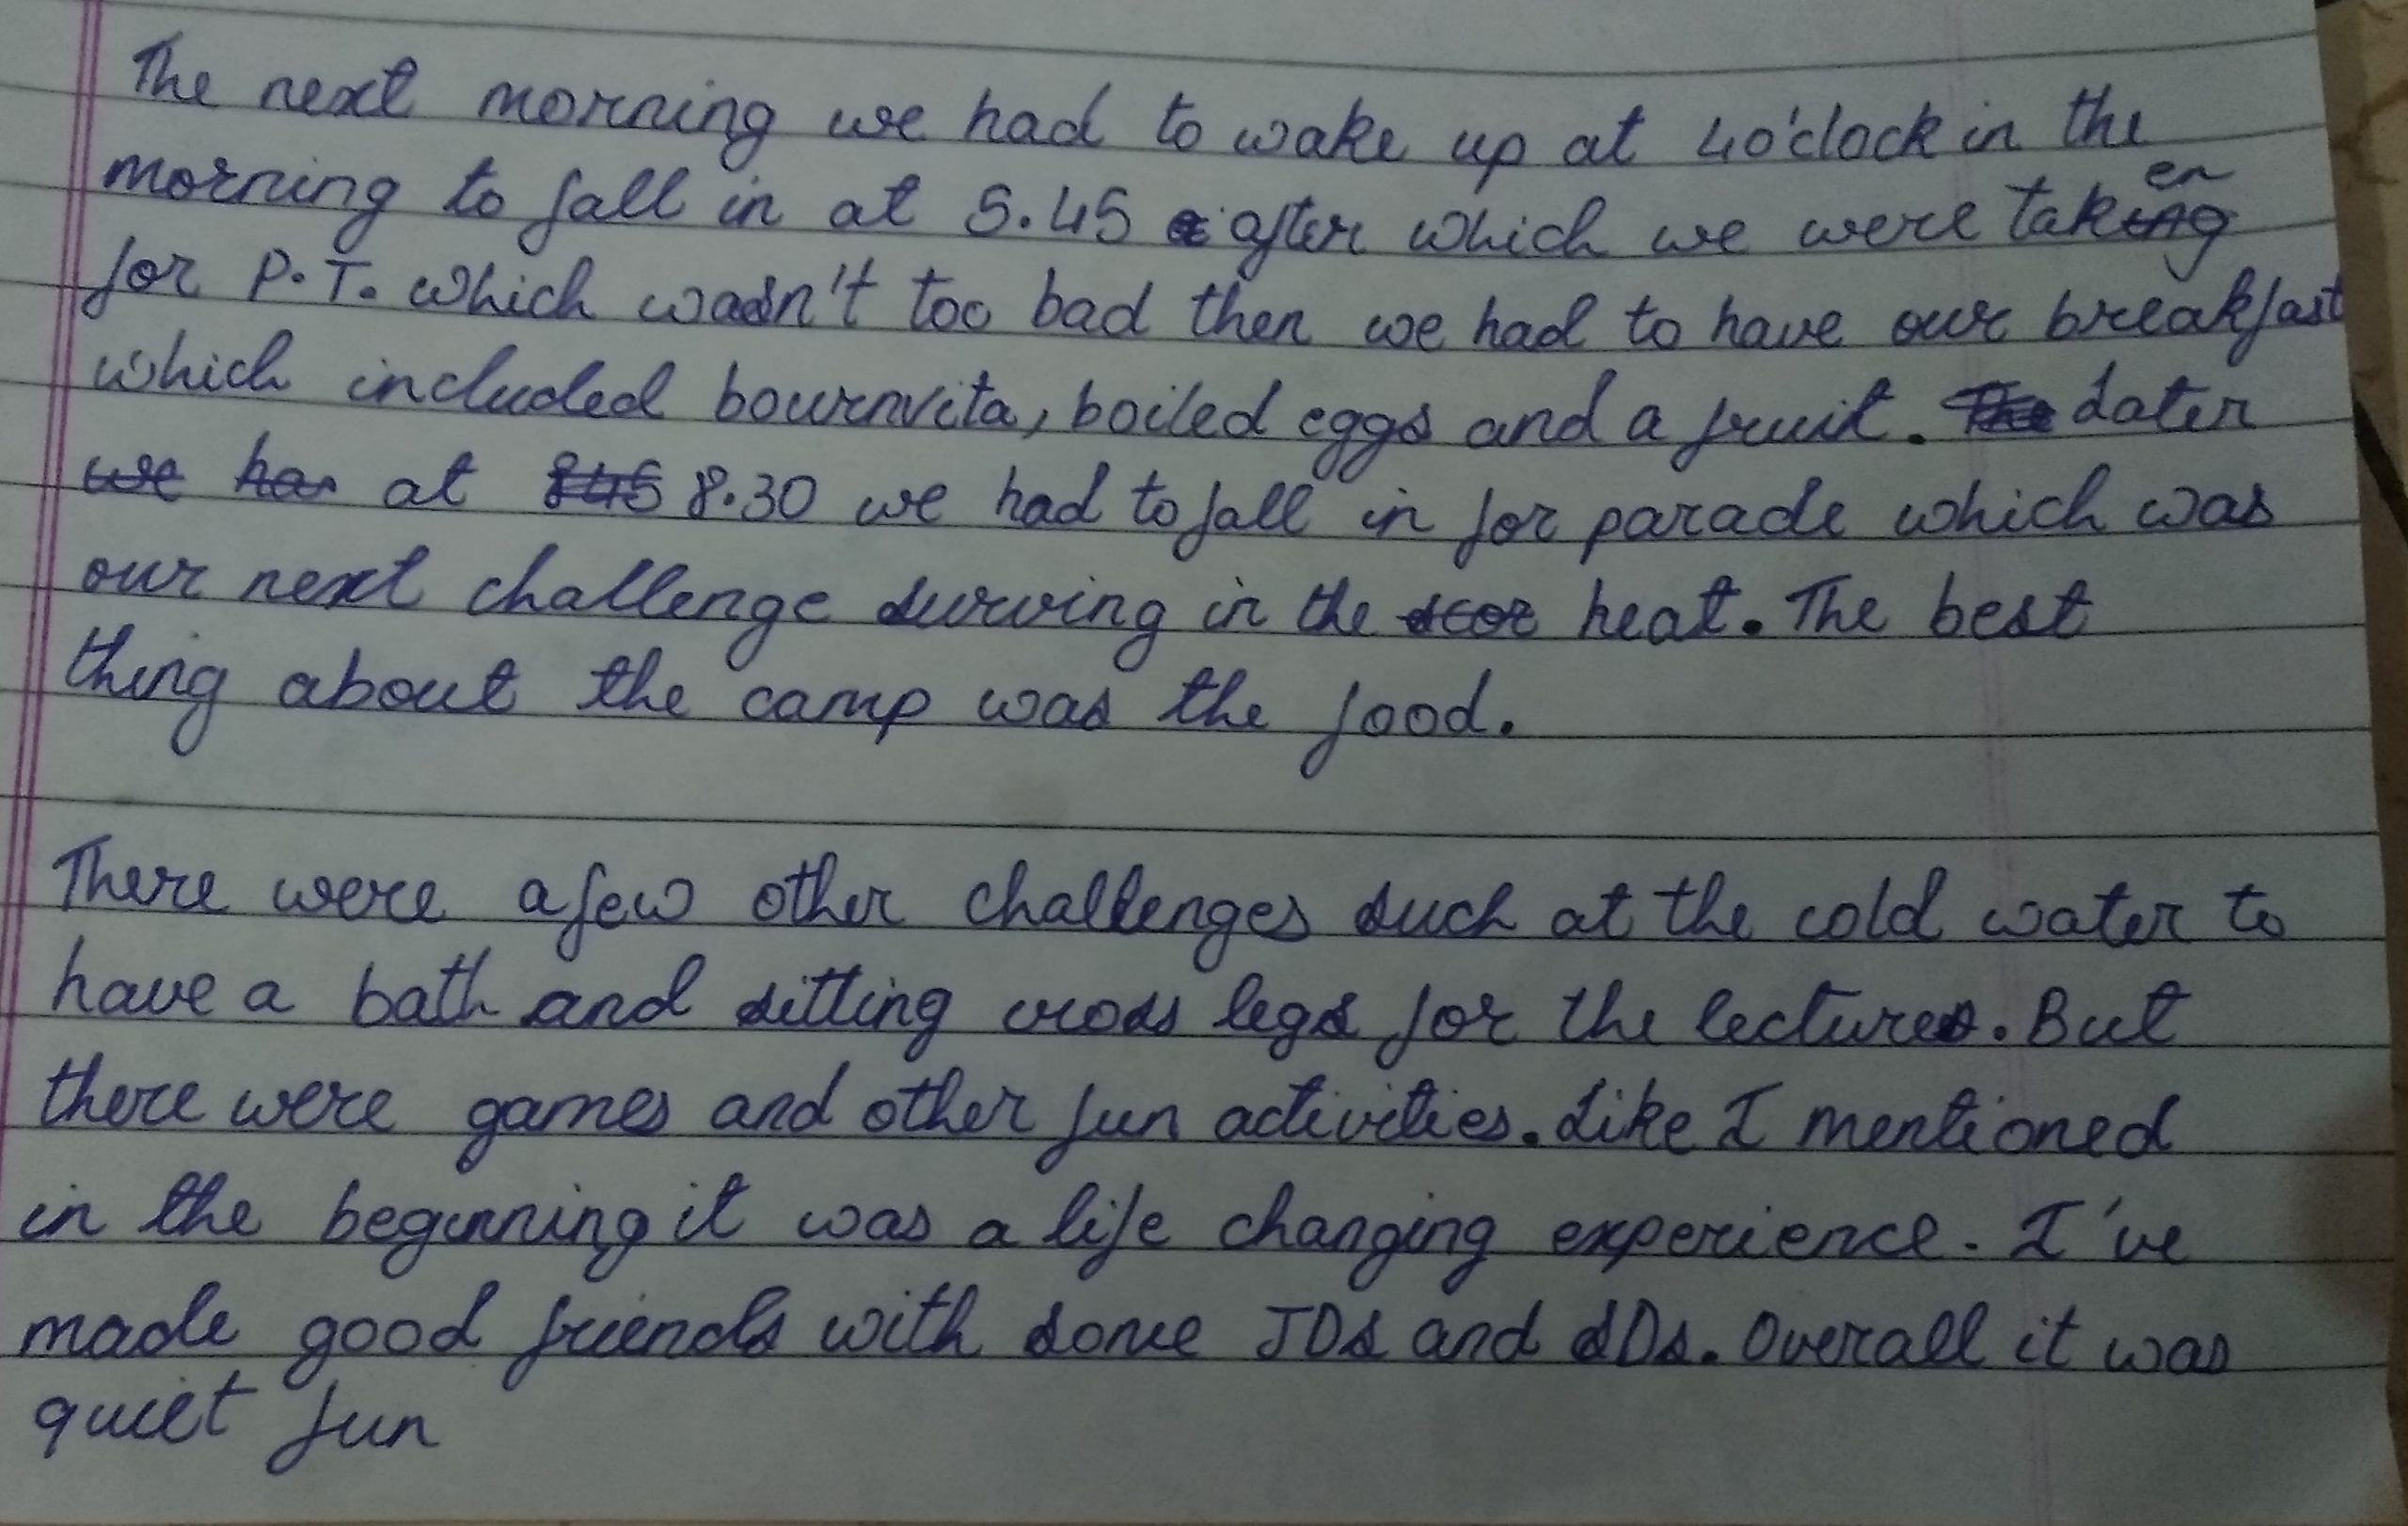 The next morning we had to wake up at 4o'clock in the
morning to fall in at 5.45 after which we were taken
for P.T. which wasn't too bad then we had to have our breakfast
which included bournvita, boiled eggs and a fruit. Later
at 8.30 we had to fall in for parade which was
our next challenge surving in the heat. The best
thing about the camp was the food.
There were a few other challenges such at the cold water to
have a bath and sitting cross legs for the lectures. But
there were games and other fun activities. Like I mentioned
in the beginning it was a life changing experience. I've
made good friends with some JDs and SDs. Overall it was
quiet fun